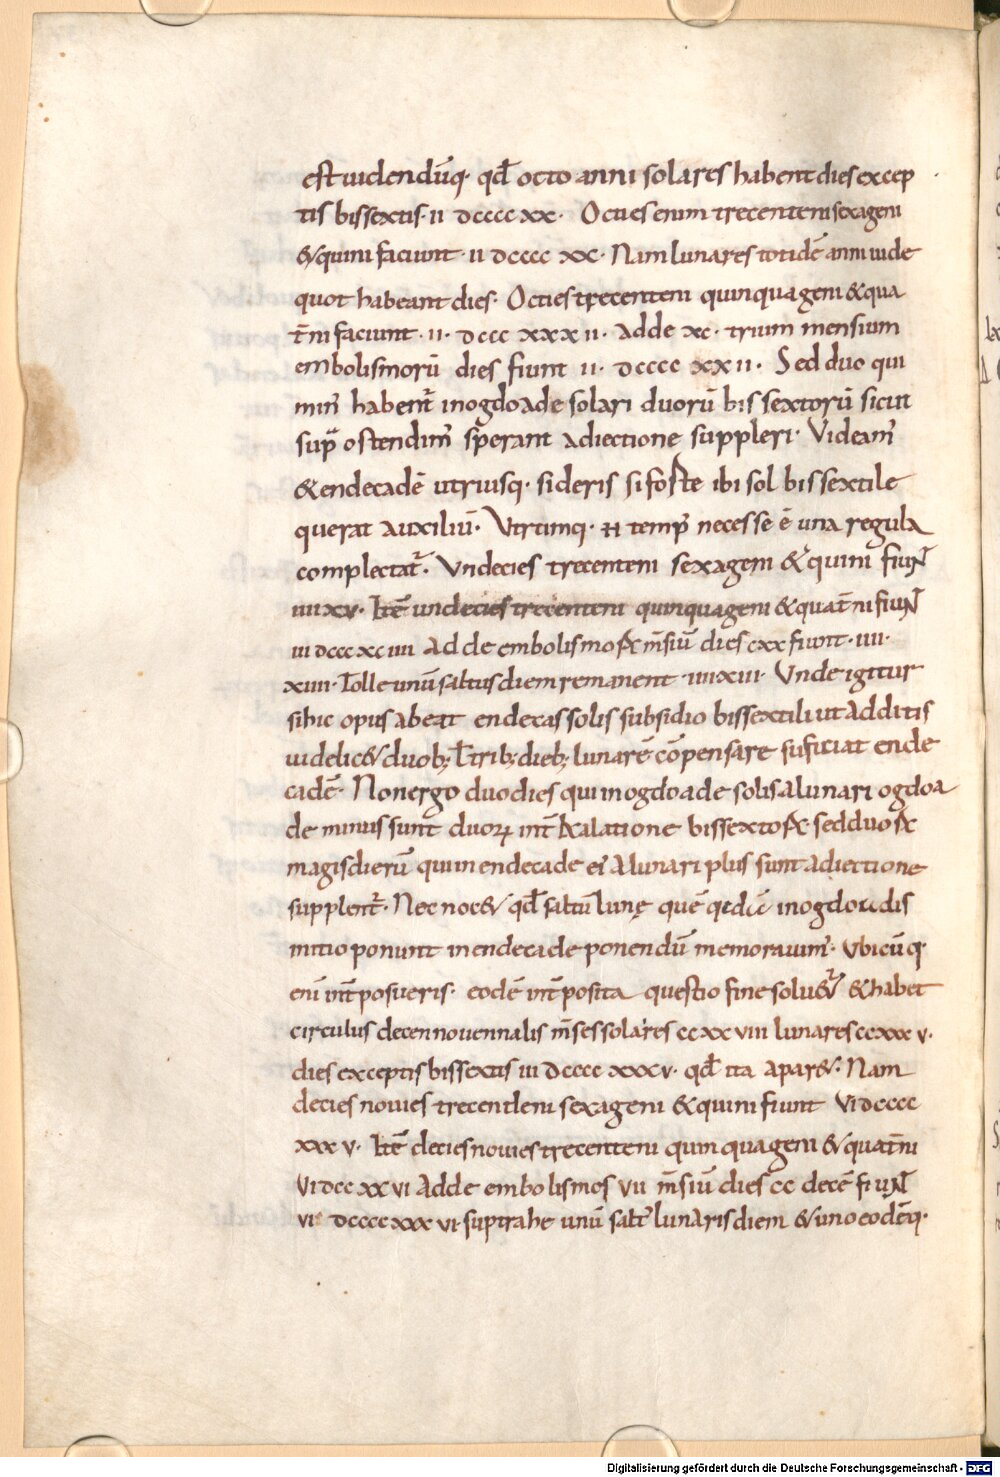 est uidendūq· qđ octo anni solares habent dies excep
tis bissextis· ii dcccc xx· Octies enim trecenteni sexageni
& quini faciunt· ii dcccc xx· Nam lunares totidē anni uide
quot habeant dies· Octies trecenteni quinquageni & qua
t̄ni faciunt· ii· dccc xxx ii· adde xc· trium mensium
embolismorū dies fiunt ii· dcccc xx ii· Sed duo qui
min' habent̄ in ogdoade solari duorū bissextorū sicut
sup̄ ostendim' sperant adiectione suppleri· Videam'
& endecadē utriusq· sideris si forte ibi sol bissextile
querat auxiliū· Vtrumq· N temp' necesse ē una regula
complectat̄· Vndecies trecenteni sexageni & quini fiunt
iiii xv· Itē undecies trecenteni quinquageni & quat̄ni fiunt
iii dccc xc iiii adde embolismoꝝ m̄siū dies cxx fiunt· iiii·
xiiii· Tolle unū saltus diem remanent iiii xiii· Vnde igitur
si hic opus abeat endecas solis subsidio bissextili ut additis
uidelic& duob; ł trib; dieb; lunarē cōpensare suficiat ende
cadē· Non ergo duo dies qui in ogdoade solis a lunari ogdoa
de minus sunt duoꝝ int̄kalatione bissextoꝝ sed duoꝝ
magis dierū qui in endecade ei' a lunari plus sunt adiectione
supplent̄· Nec noc& qđ saltū lunę quē qidā in ogdoadis
initio ponunt in endecade ponendū memorauim'· Vbicūq·
eni int̄posueris· eodē int̄posita questio fine solu&̄ & habet
circulus decennouennalis m̄ses solares cc xx viii lunares cc xxx v·
dies exceptis bissextis iii dcccc xxx v· qđ ita apar&· Nam
decies nouies trecenteni sexageni & quini fiunt Vi dcccc
xxx v· Itē decies nouies trecenteni quinquageni & quat̄ni
Vi dcc xx vi adde embolismos vii m̄siū dies cc decē fiunt
vi dcccc xxx vi suptrahe unū salt' lunaris diem & uno eodēq·
Digitalisierung gefördert durch die Deutsche Forschungsgemeinschaft - DFG